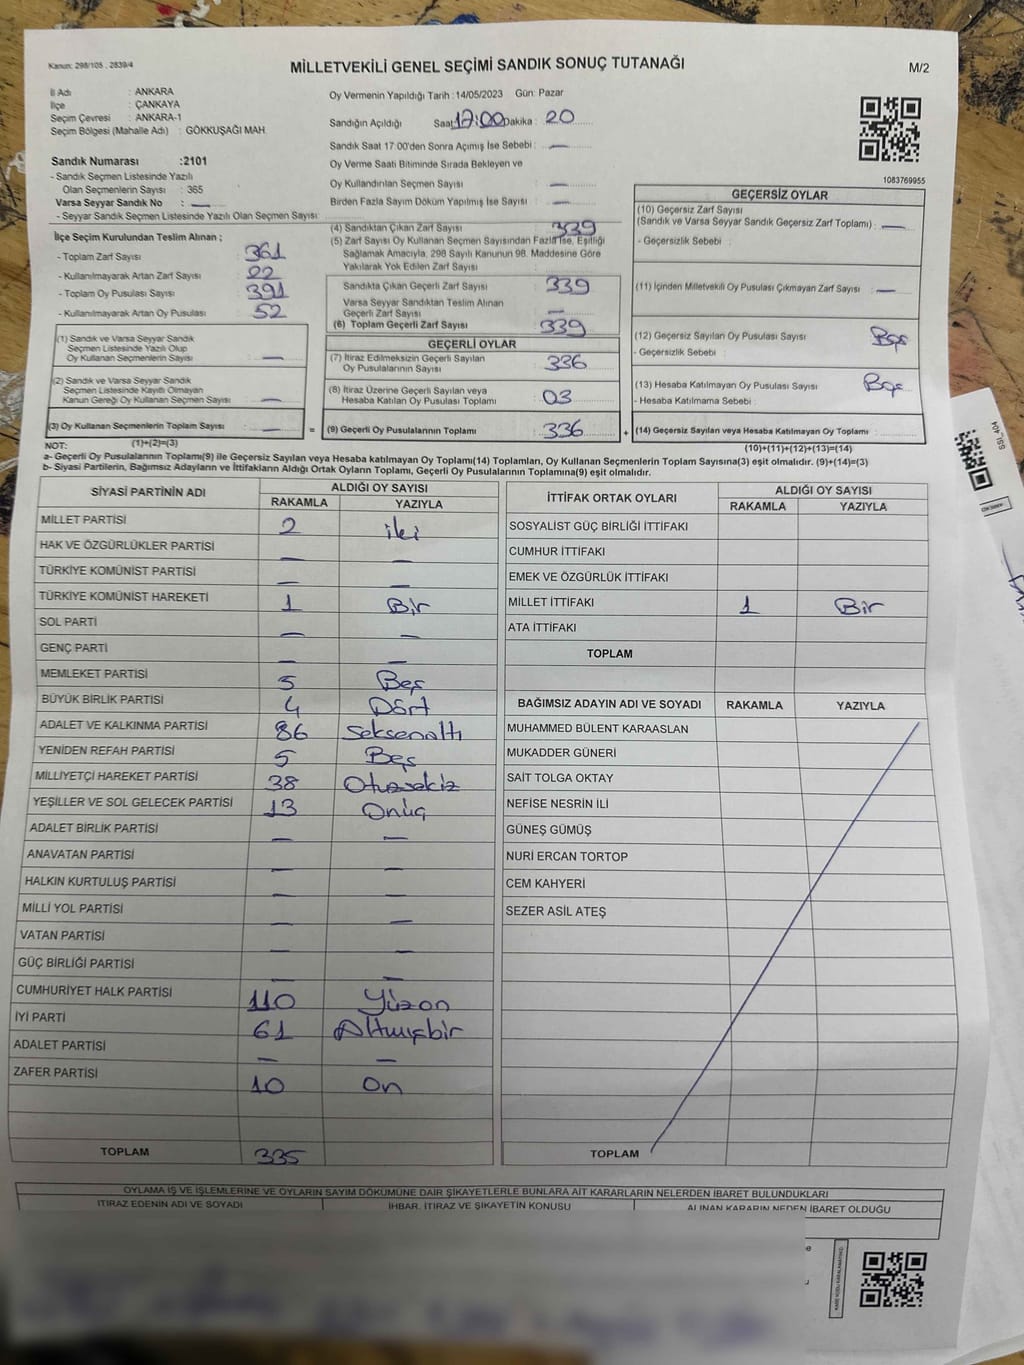 Kanun: 298/105 , 2839/4
MİLLETVEKİLİ GENEL SEÇİMİ SANDIK SONUÇ TUTANAĞI
M/2
İl Adı : ANKARA
İlçe : ÇANKAYA
Seçim Çevresi : ANKARA-1
Seçim Bölgesi (Mahalle Adı) : GÖKKUŞAĞI MAH.
Oy Vermenin Yapıldığı Tarih : 14/05/2023 Gün: Pazar
Sandığın Açıldığı Saat 17:00 Dakika : 20
Sandık Saat 17:00'den Sonra Açımış İse Sebebi : —
Oy Verme Saati Bitiminde Sırada Bekleyen ve
Oy Kullandırılan Seçmen Sayısı : —
Birden Fazla Sayım Döküm Yapılmış İse Sayısı : —
1083769955
Sandık Numarası :2101
- Sandık Seçmen Listesinde Yazılı
Olan Seçmenlerin Sayısı : 365
Varsa Seyyar Sandık No : —
- Seyyar Sandık Seçmen Listesinde Yazılı Olan Seçmen Sayısı:
İlçe Seçim Kurulundan Teslim Alınan ;
- Toplam Zarf Sayısı : 361
- Kullanılmayarak Artan Zarf Sayısı : 22
- Toplam Oy Pusulası Sayısı : 391
- Kullanılmayarak Artan Oy Pusulası : 52
(1) Sandık ve Varsa Seyyar Sandık
Seçmen Listesinde Yazılı Olup
Oy Kullanan Seçmenlerin Sayısı : —
(2) Sandık ve Varsa Seyyar Sandık
Seçmen Listesinde Kayıtlı Olmayan
Kanun Gereği Oy Kullanan Seçmen Sayısı : —
(3) Oy Kullanan Seçmenlerin Toplam Sayısı : —
(4) Sandıktan Çıkan Zarf Sayısı : 339
(5) Zarf Sayısı Oy Kullanan Seçmen Sayısından Fazla İse, Eşitliği
Sağlamak Amacıyla, 298 Sayılı Kanunun 98. Maddesine Göre
Yakılarak Yok Edilen Zarf Sayısı :
Sandıkta Çıkan Geçerli Zarf Sayısı : 339
Varsa Seyyar Sandıktan Teslim Alınan
Geçerli Zarf Sayısı : —
(6) Toplam Geçerli Zarf Sayısı : 339
GEÇERLİ OYLAR
(7) İtiraz Edilmeksizin Geçerli Sayılan
Oy Pusulalarının Sayısı : 336
(8) İtiraz Üzerine Geçerli Sayılan veya
Hesaba Katılan Oy Pusulası Toplamı : 03
= (9) Geçerli Oy Pusulalarının Toplamı : 336
GEÇERSİZ OYLAR
(10) Geçersiz Zarf Sayısı
(Sandık ve Varsa Seyyar Sandık Geçersiz Zarf Toplamı) : —
- Geçersizlik Sebebi :
(11) İçinden Milletvekili Oy Pusulası Çıkmayan Zarf Sayısı : —
(12) Geçersiz Sayılan Oy Pusulası Sayısı : Boş
- Geçersizlik Sebebi :
(13) Hesaba Katılmayan Oy Pusulası Sayısı : Boş
- Hesaba Katılmama Sebebi :
+ (14) Geçersiz Sayılan veya Hesaba Katılmayan Oy Toplamı :
NOT: (1)+(2)=(3)
(10)+(11)+(12)+(13)=(14)
a- Geçerli Oy Pusulalarının Toplamı(9) ile Geçersiz Sayılan veya Hesaba katılmayan Oy Toplamı(14) Toplamları, Oy Kullanan Seçmenlerin Toplam Sayısına(3) eşit olmalıdır. (9)+(14)=(3)
b- Siyasi Partilerin, Bağımsız Adayların ve İttifakların Aldığı Ortak Oyların Toplamı, Geçerli Oy Pusulalarının Toplamına(9) eşit olmalıdır.
SİYASİ PARTİNİN ADI ALDIĞI OY SAYISI
RAKAMLA YAZIYLA
MİLLET PARTİSİ 2 iki
HAK VE ÖZGÜRLÜKLER PARTİSİ — —
TÜRKİYE KOMÜNİST PARTİSİ — —
TÜRKİYE KOMÜNİST HAREKETİ 1 Bir
SOL PARTİ — —
GENÇ PARTİ — —
MEMLEKET PARTİSİ 5 Beş
BÜYÜK BİRLİK PARTİSİ 4 Dört
ADALET VE KALKINMA PARTİSİ 86 Seksenaltı
YENİDEN REFAH PARTİSİ 5 Beş
MİLLİYETÇİ HAREKET PARTİSİ 38 Otuzsekiz
YEŞİLLER VE SOL GELECEK PARTİSİ 13 Onüç
ADALET BİRLİK PARTİSİ — —
ANAVATAN PARTİSİ — —
HALKIN KURTULUŞ PARTİSİ — —
MİLLİ YOL PARTİSİ — —
VATAN PARTİSİ — —
GÜÇ BİRLİĞİ PARTİSİ — —
CUMHURİYET HALK PARTİSİ 110 Yüzon
İYİ PARTİ 61 Altmışbir
ADALET PARTİSİ — —
ZAFER PARTİSİ 10 On
TOPLAM 335
İTTİFAK ORTAK OYLARI ALDIĞI OY SAYISI
RAKAMLA YAZIYLA
SOSYALİST GÜÇ BİRLİĞİ İTTİFAKI
CUMHUR İTTİFAKI
EMEK VE ÖZGÜRLÜK İTTİFAKI
MİLLET İTTİFAKI 1 Bir
ATA İTTİFAKI
TOPLAM
BAĞIMSIZ ADAYIN ADI VE SOYADI RAKAMLA YAZIYLA
MUHAMMED BÜLENT KARAASLAN
MUKADDER GÜNERİ
SAİT TOLGA OKTAY
NEFİSE NESRİN İLİ
GÜNEŞ GÜMÜŞ
NURİ ERCAN TORTOP
CEM KAHYERİ
SEZER ASİL ATEŞ
TOPLAM
OYLAMA İŞ VE İŞLEMLERİNE VE OYLARIN SAYIM DÖKÜMÜNE DAİR ŞİKAYETLERLE BUNLARA AİT KARARLARIN NELERDEN İBARET BULUNDUKLARI
İTİRAZ EDENİN ADI VE SOYADI İHBAR, İTİRAZ VE ŞİKAYETİN KONUSU ALINAN KARARIN NEDEN İBARET OLDUĞU